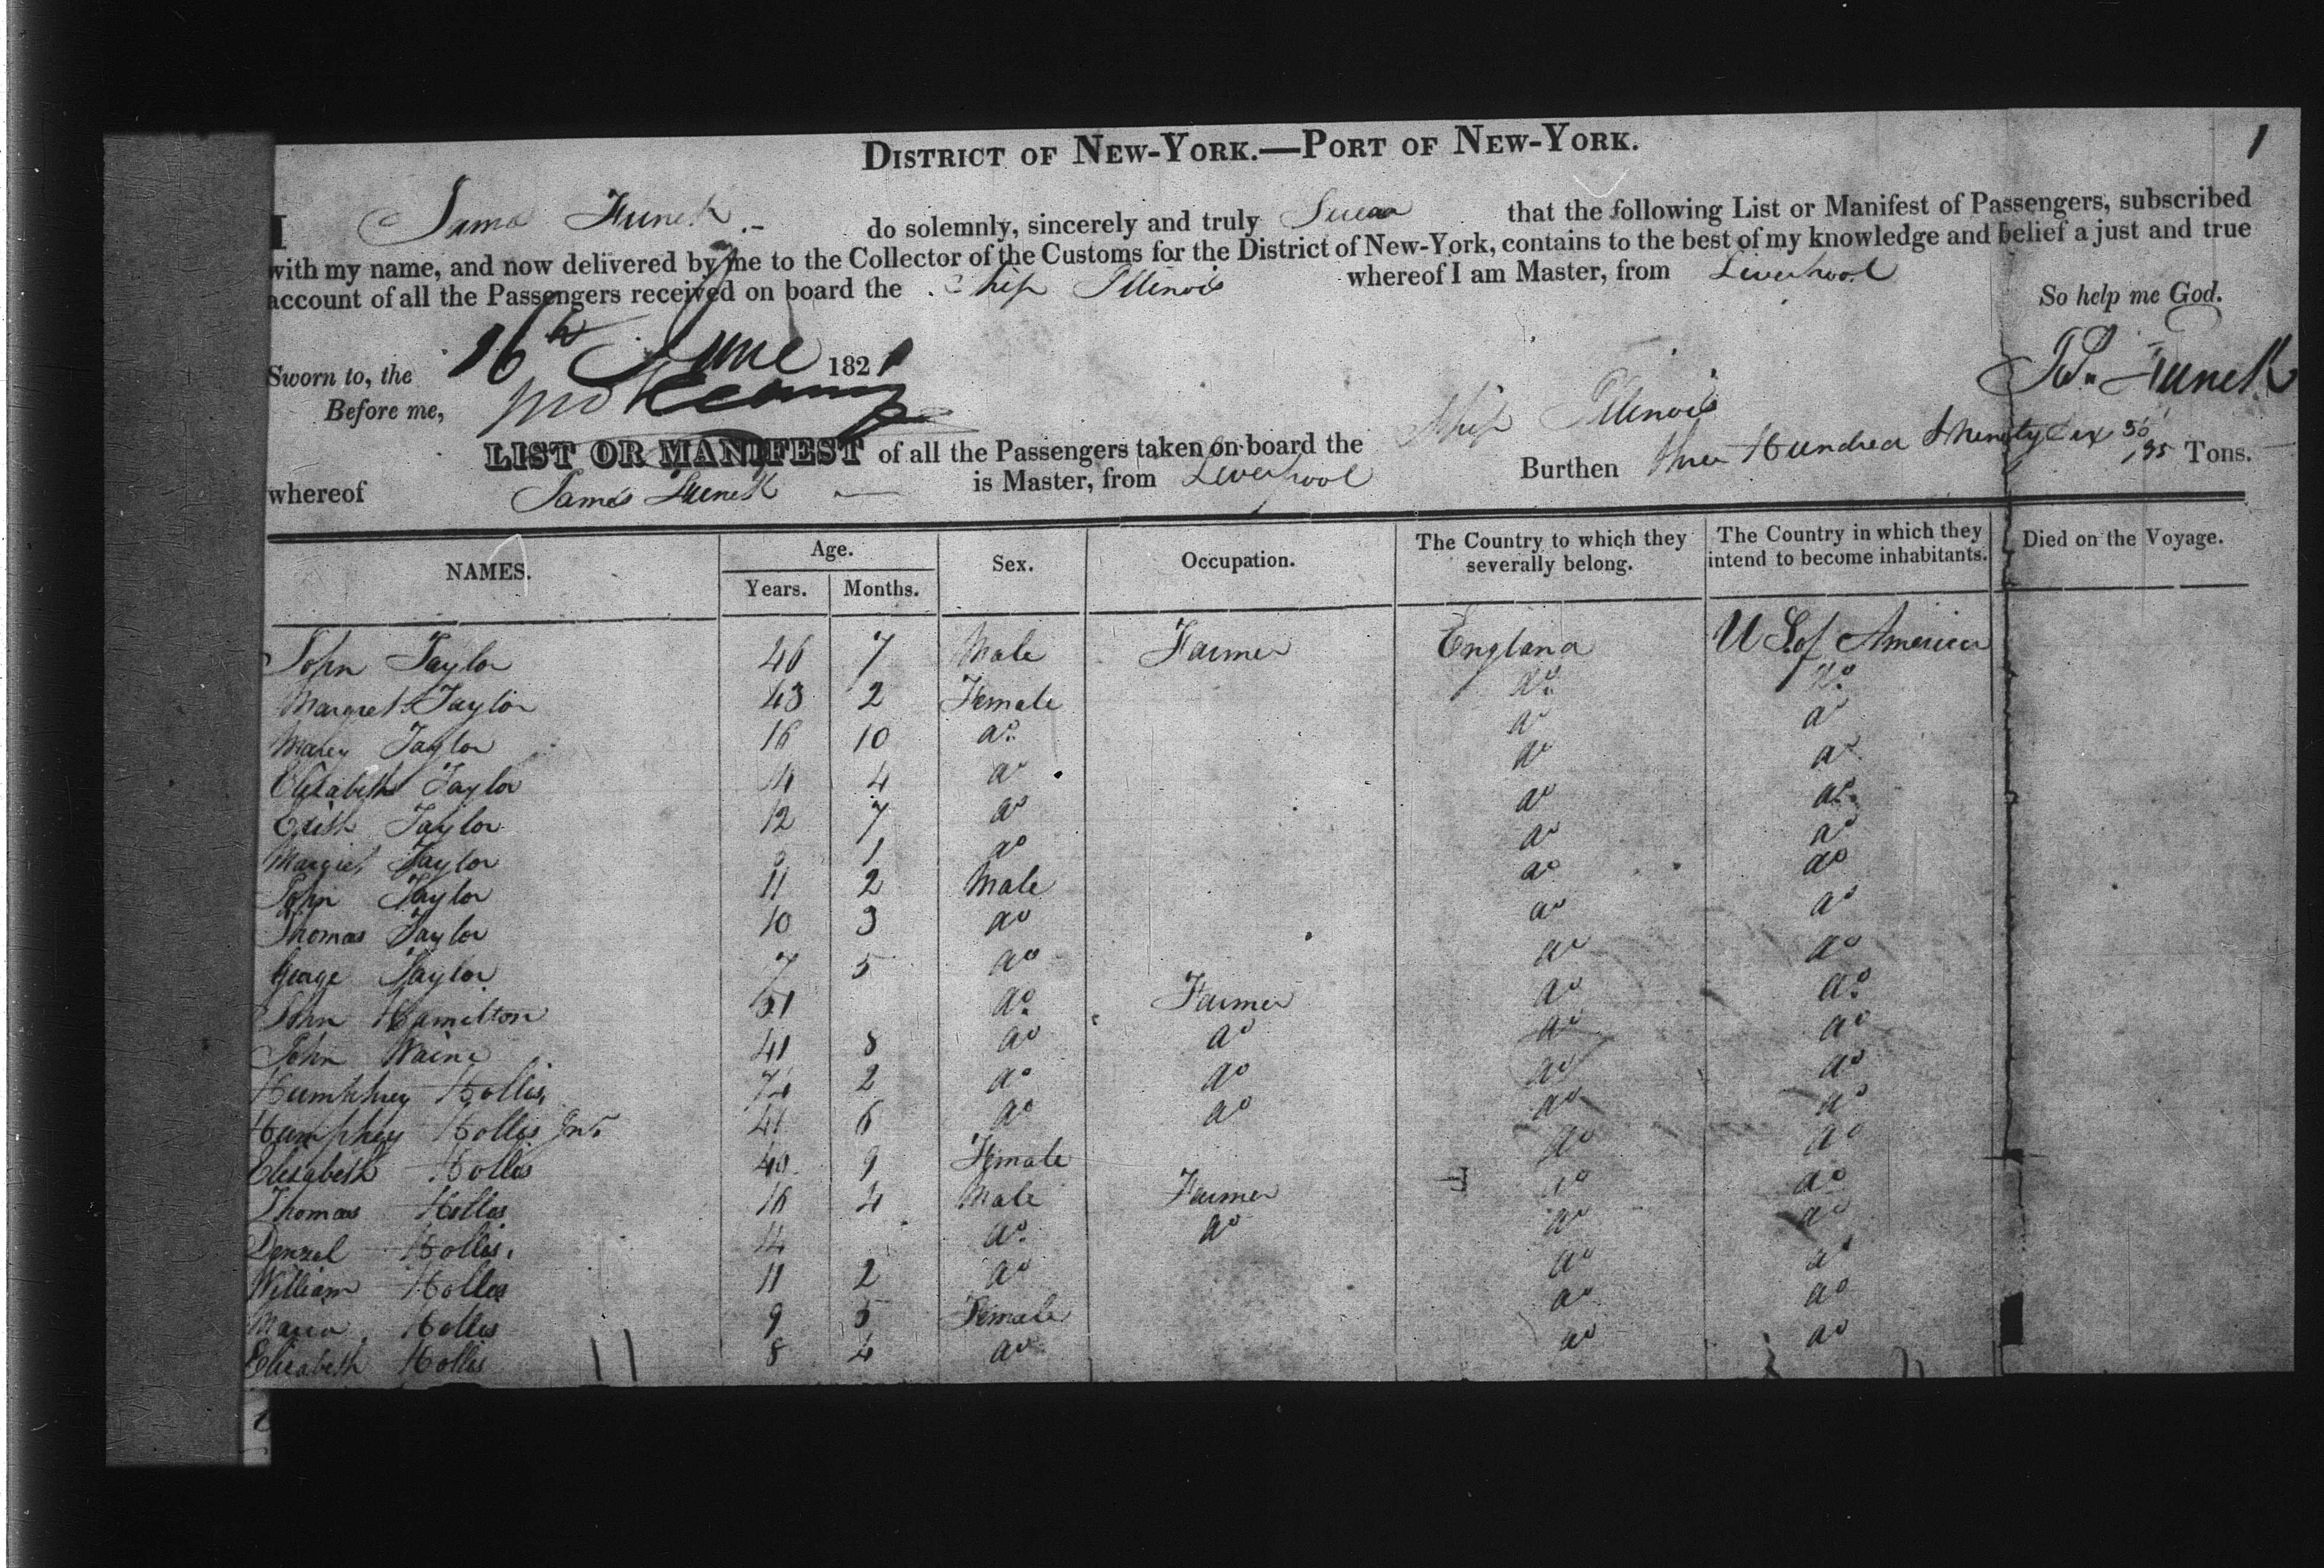 1
DISTRICT OF NEW-YORK.—PORT OF NEW-YORK.
I James Funck do solemnly, sincerely and truly Swear that the following List or Manifest of Passengers, subscribed
with my name, and now delivered by me to the Collector of the Customs for the District of New-York, contains to the best of my knowledge and belief a just and true
account of all the Passengers received on board the Ship Illinois whereof I am Master, from Liverpool
So help me God.
Sworn to, the 16th June 1821
Before me,
Js. Funck
LIST OR MANIFEST of all the Passengers taken on board the Ship Illinois
whereof James Funck is Master, from Liverpool Burthen three Hundred & Ninety Six /95 Tons.
NAMES. Age. Sex. Occupation. The Country to which they severally belong. The Country in which they intend to become inhabitants. Died on the Voyage.
Years. Months.
John Taylor 46 7 Male Farmer England U S. of America
Margret Taylor 43 2 Female do do
Marey Taylor 16 10 do do do
Elizabeth Taylor 14 4 do do do
Edith Taylor 12 7 do do do
Margret Taylor 1 do do do
John Taylor 11 2 Male do do
Thomas Taylor 10 3 do do do
George Taylor 7 5 do do do
John Hamelton 51 do Farmer do do
John Waine 41 8 do do do do
Humphrey Hollis 74 2 do do do do
Humphey Hollis Jnr 41 6 do do do do
Elizabeth Hollis 40 9 Female do do
Thomas Hollis 16 4 Male Farmer do do
Denzel Hollis 14 do do do do
William Hollis 11 2 do do do
Maria Hollis 9 5 Female do do
Elizabeth Hollis 8 4 do do do